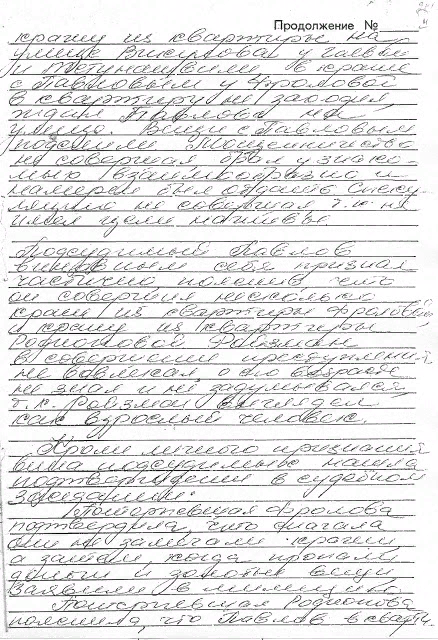 Продолжение №
кражу из квартиры на
улице Викулова у
и в краже
с Павловым у Фроловой
в квартиру не заходил
ждал Павлова на
улице. Вещи с Павловым
поделили. Мошенничество
не совершал брал у знако-
мых взаимообразно и
намерен был отдать. Спеку-
ляцию не совершал т.к. не
имел цели наживы.
Подсудимый Павлов
виновным себя признал
частично пояснив что
он совершил несколько
краж из квартиры Фроловой
и кражу из квартиры
Родионовой. Ройзман
в совершении преступлений
не вовлекал о его возрасте
не знал и не задумывался
т.к. Ройзман выглядел
как взрослый человек.
Кроме личного признания
вина подсудимых нашла
подтверждение в судебном
заседании.
Потерпевшая Фролова
подтвердила, что сначала
они не замечали кражи
а затем, когда пропали
деньги и золотые вещи
заявили в милицию.
Потерпевшая Родионова
пояснила, что Павлов в